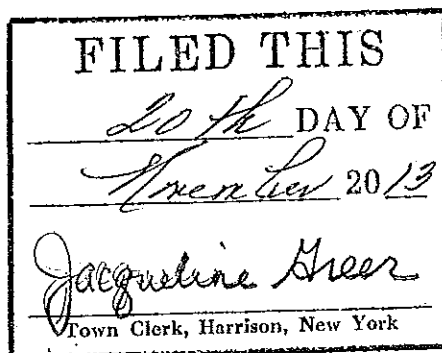 FILED THIS
20th DAY OF
November 2013
Jacqueline Greer
Town Clerk, Harrison, New York